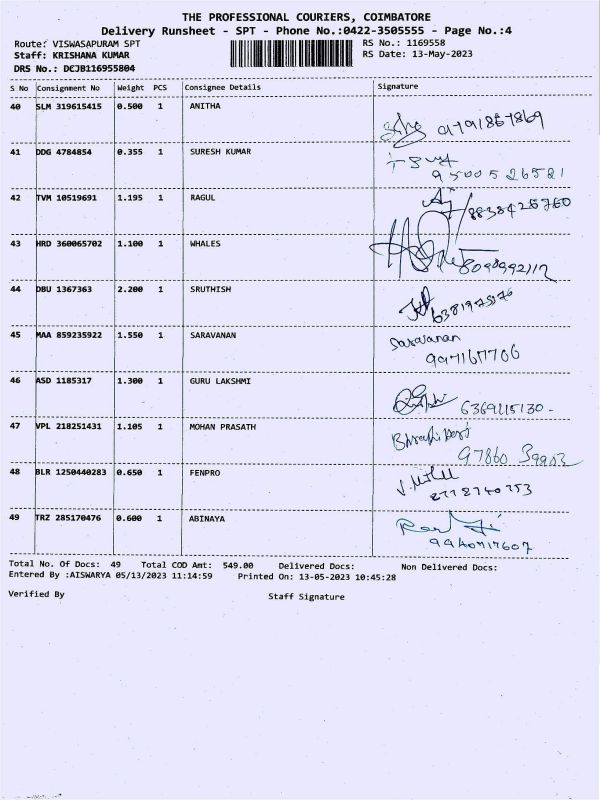 THE PROFESSIONAL COURIERS, COIMBATORE
Delivery Runsheet - SPT - Phone No.:0422-3505555 - Page No.:4
Route: VISWASAPURAM SPT RS No.: 1169558
Staff: KRISHANA KUMAR RS Date: 13-May-2023
DRS No.: DCJB116955804
S No Consignment No Weight PCS Consignee Details Signature
40 SLM 319615415 0.500 1 ANITHA
41 DDG 4784854 0.355 1 SURESH KUMAR
9500526581
42 TVM 10519691 1.195 1 RAGUL
43 HRD 360065702 1.100 1 WHALES
44 DBU 1367363 2.200 1 SRUTHISH
45 MAA 859235922 1.550 1 SARAVANAN
Saravanan
46 ASD 1185317 1.300 1 GURU LAKSHMI
6369115130 -
47 VPL 218251431 1.105 1 MOHAN PRASATH
48 BLR 1250440283 0.650 1 FENPRO
49 TRZ 285170476 0.600 1 ABINAYA
Total No. Of Docs: 49 Total COD Amt: 549.00 Delivered Docs: Non Delivered Docs:
Entered By :AISWARYA 05/13/2023 11:14:59 Printed On: 13-05-2023 10:45:28
Verified By Staff Signature